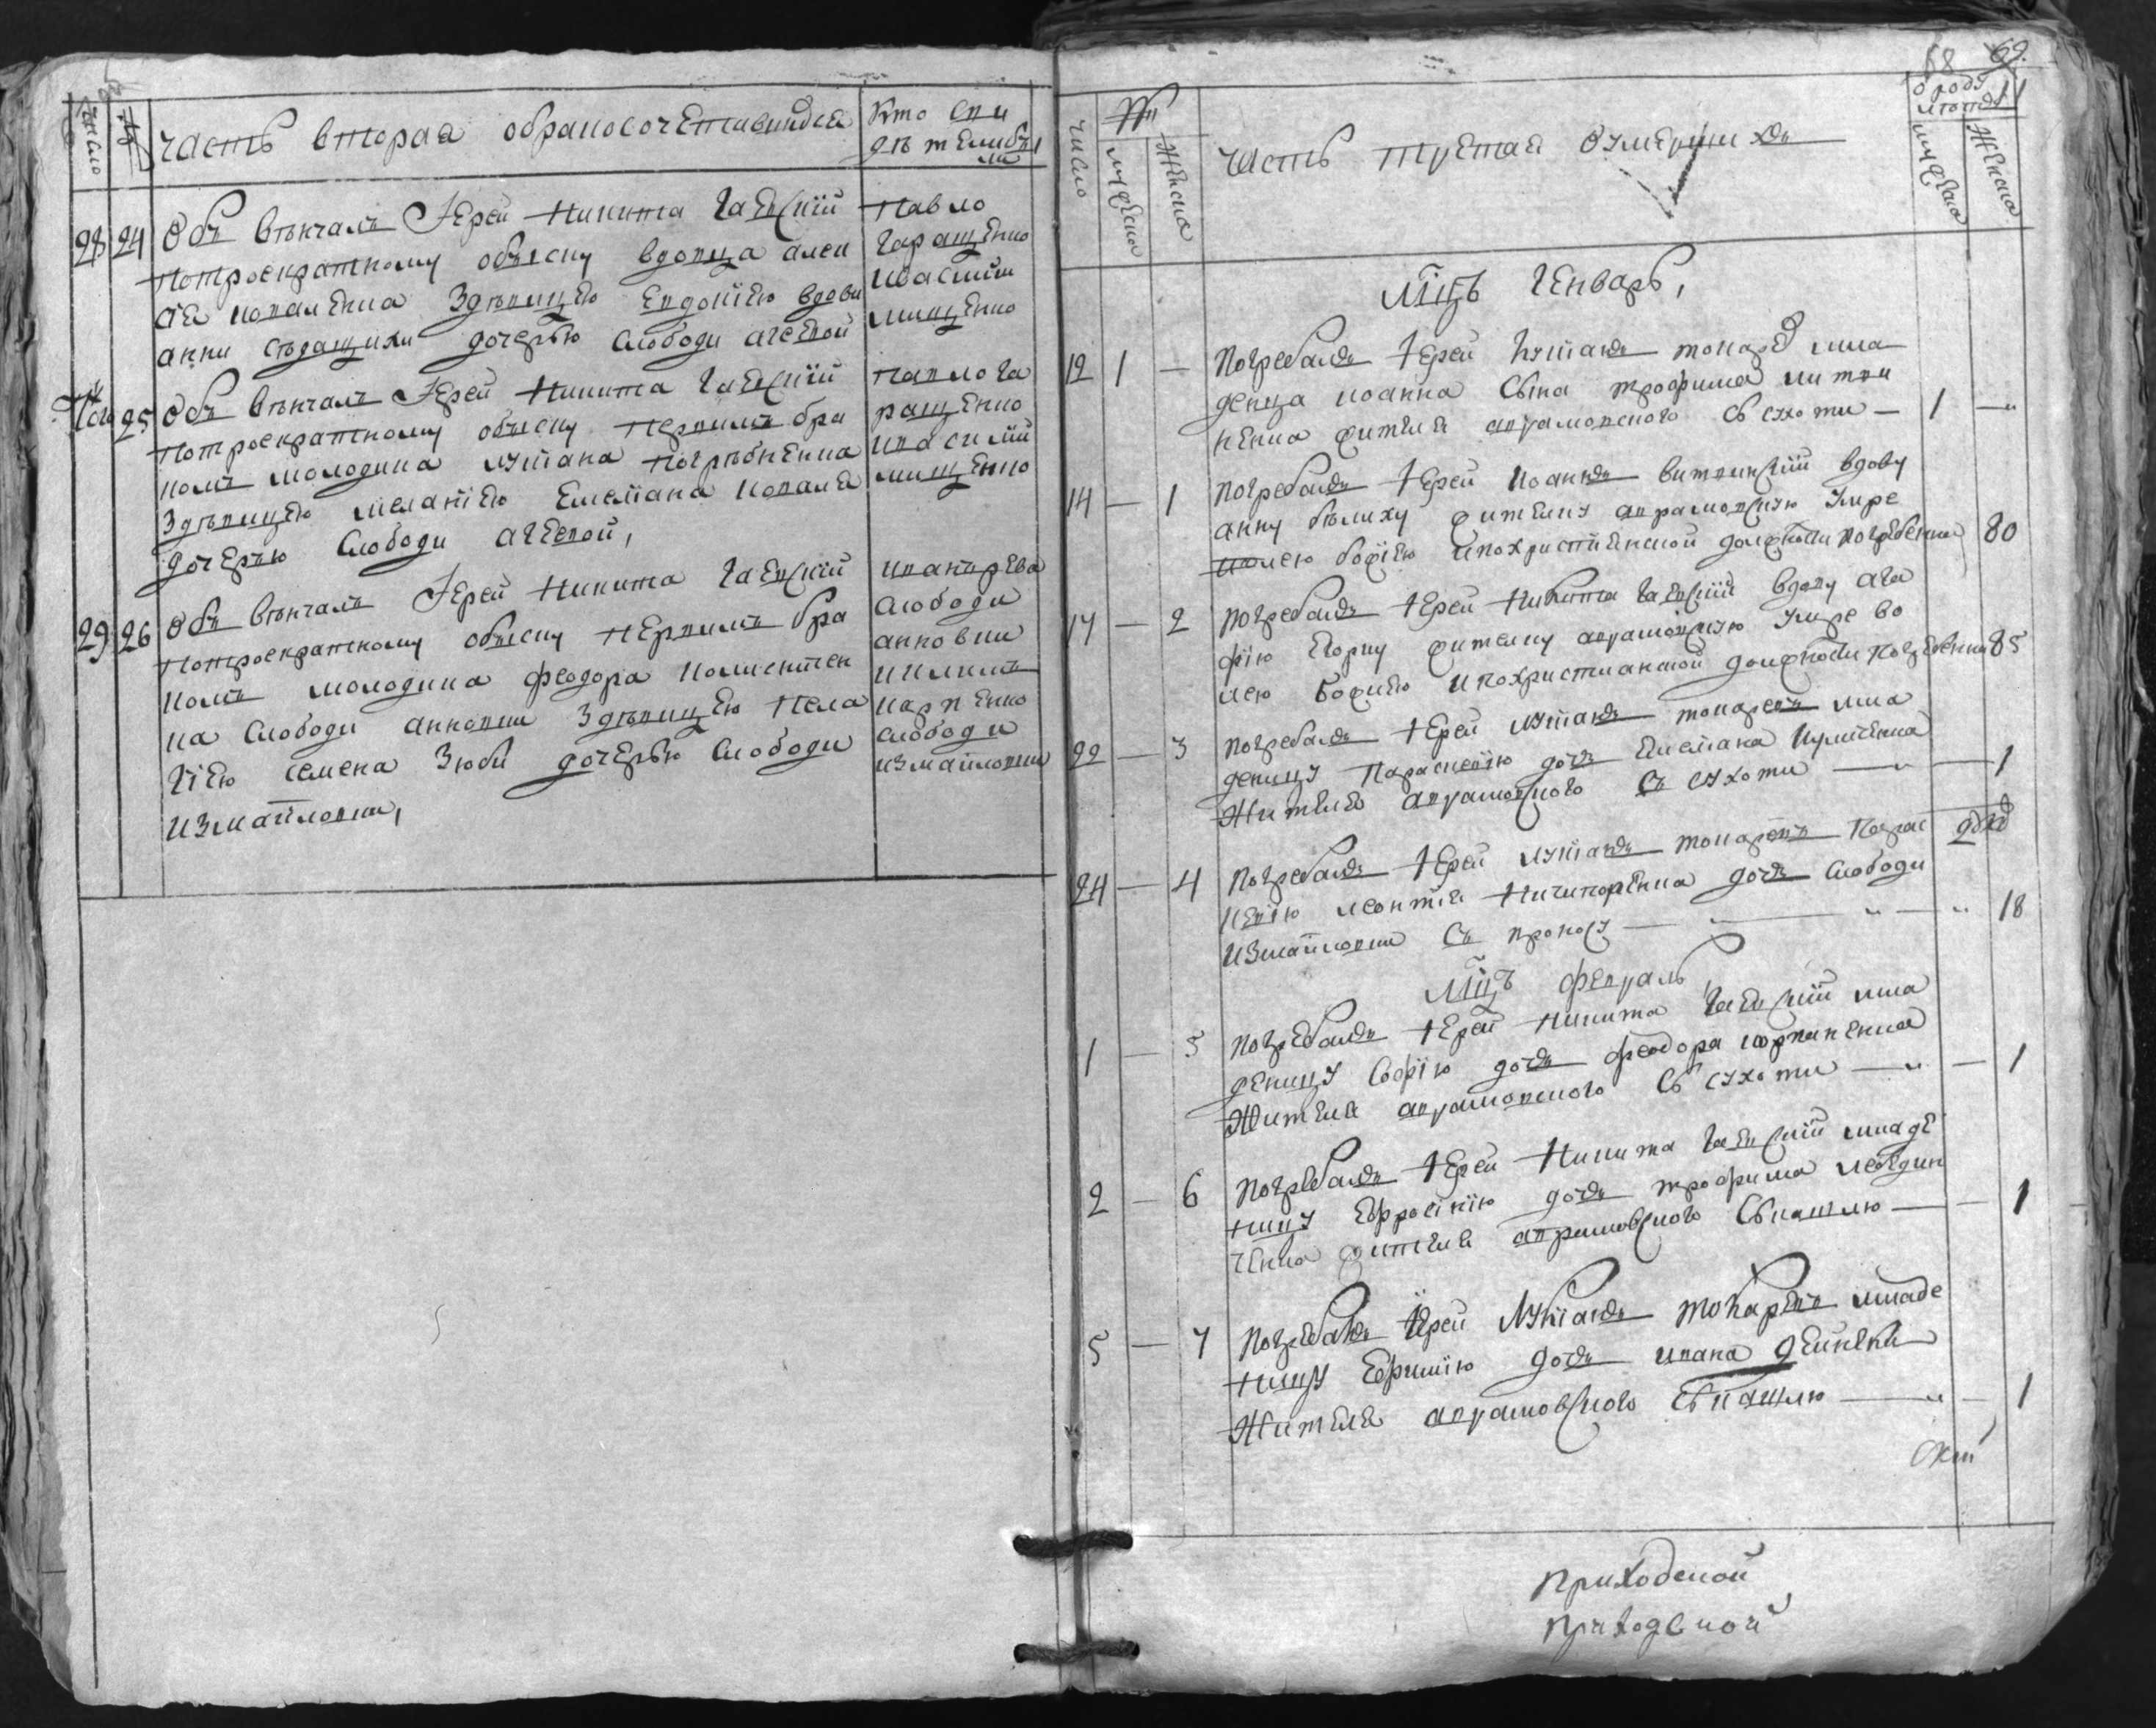 число
часть вторая обраносочетавшихся
кто сви
дѣтелибы
ли
28 24 Объ вѣнчалъ Iерей Никита Гаевскiй
потроекратному обыску вдовца алек
сѣя коваленка Здѣвицею Евдокiею вдови
анни сѣдащихи дочерью слободи агеевой
Павло
Гаращенко
ивасилiй
мищенко
25 Объ вѣнчалъ Iерей Никита Гаевскiй
потроекратному обыску первимъ бра
комъ молодика лукiана погрѣбненка
Здѣвицею меланiею Емелiана ковалѣ
дочерью слободи агеевой,
Павло Га
ращенко
ивасилiй
мищенко
29 26 Объ вѣнчалъ Iерей Никита Гаевскiй
потроекратному обыску первимъ бра
комъ молодика феодора
на слободи анновки Здѣвицею Пела
гiею семена Зюби дочерью слободи
измайловки,
слободи
анновки
карпенко
слободи
измайловки
68 69
число
мужеска
женска
часть третая Оумершихъ
мужеска
женска
Мцъ Генварь,
12 1 — Погребалъ Iерей Лукiанъ токарев мла
денца иоанна сина трофима литви
ненка жителя аврамовского съ сухоти — 1 —
14 — 1 Погребалъ Iерей Иоаннъ витвинскiй вдову
анну бѣлиху жителку аврамовскую умре
волею божiею ипохристiянской должности погребенна 80
17 — 2 Погребалъ Iерей Никита Гаевскiй вдову ага
фiю жителку аврамовскую умре во
лею божиею ипохристианской должности погребенна 85
22 — 3 Погребалъ Iерей лукiанъ токаревъ мла
деницу Параскевiю дочь Емелiана
Жителя аврамовского съ сухоти — 1
24 — 4 Погребалъ Iерей лукiанъ токаревъ Парас
кевiю леонтiя Ничипоренка дочь слободи
измайловки 18
Мцъ февраль
1 — 5 Погребалъ Iерей Никита Гаевскiй мла
деницу Софiю дочь феодора
Жителя аврамовского съ сухоти — 1
2 — 6 Погребалъ Iерей Никита Гаевскiй младе
ницу Ефросiнiю дочь трофима лебедин
ченка жителя аврамовского съкашлю — 1
5 — 7 Погребалъ Iерей Лукiанъ токаревъ младе
ницу Ефимiю дочь ивана дейнеки
Жителя аврамовского съкашлю — 1
приходской
приходской